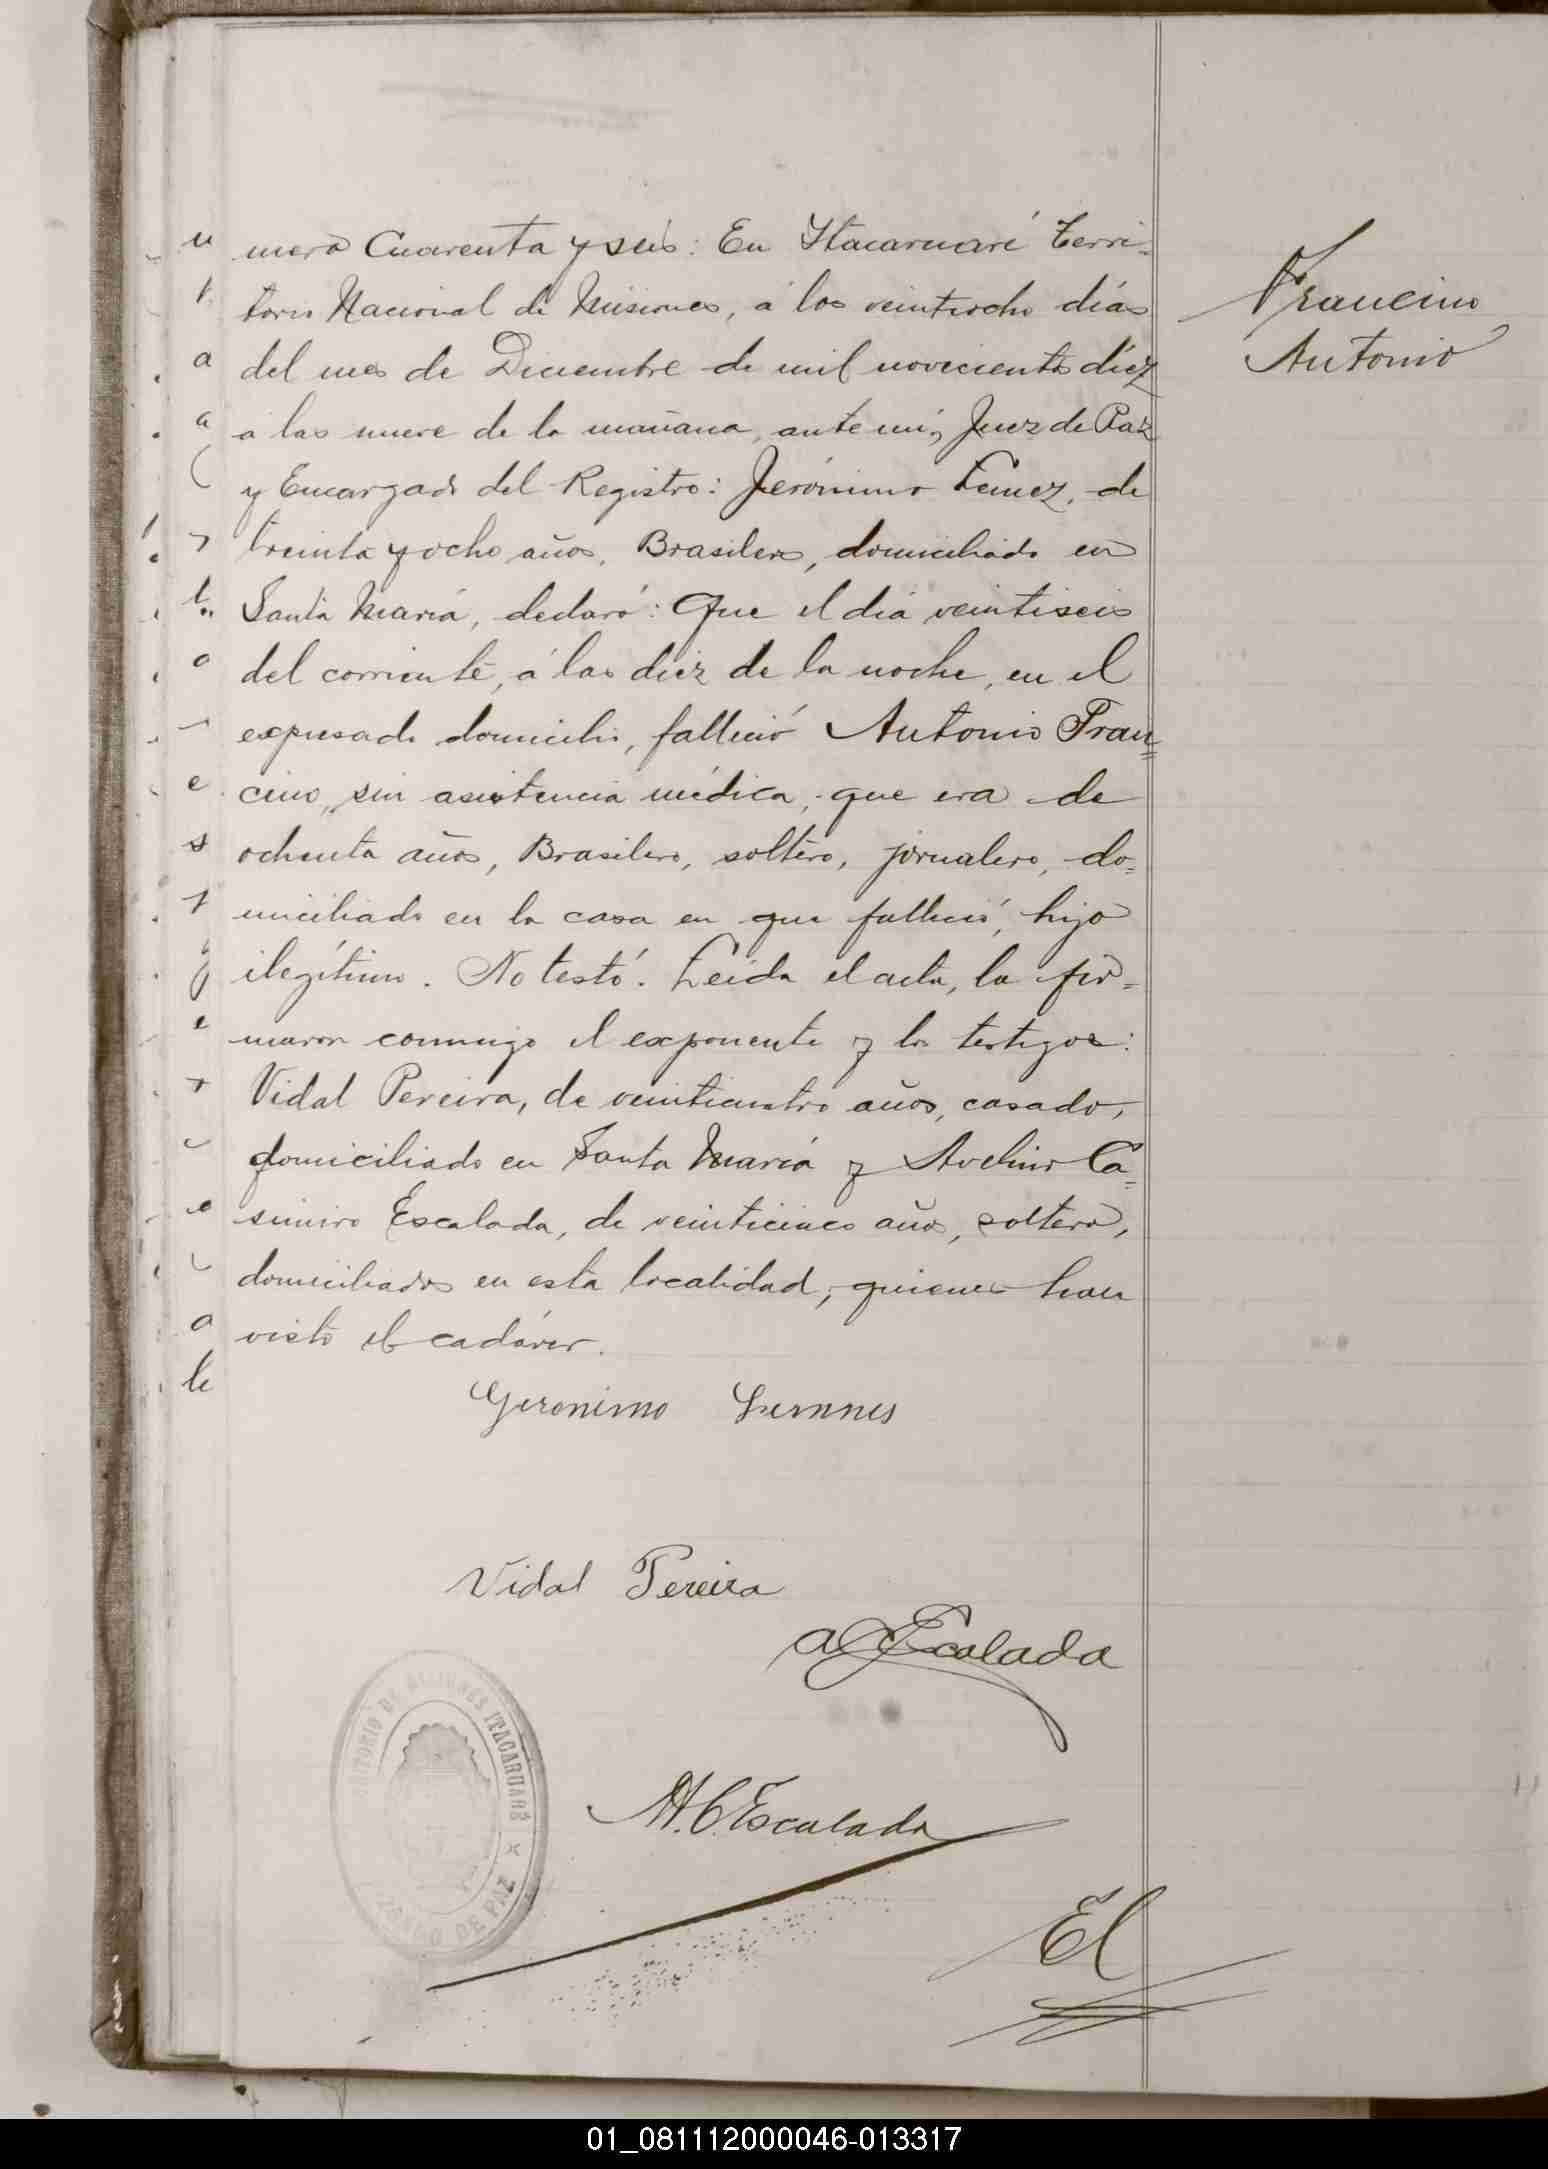 mero Cuarenta y seis: En Itacaruaré Terri-
torio Nacional de Misiones, á los veintiocho días
del mes de Diciembre de mil novecientos diez
a las nueve de la mañana, ante mí, Juez de Paz
y Encargado del Registro: Jerónimo Lemez, de
treinta y ocho años, Brasilero, domiciliado en
Santa María, declaró: Que el día veintiseis
del corriente, á las diez de la noche, en el
expresado domicilio, falleció Antonio Fran=
cino, sin asistencia médica, que era de
ochenta años, Brasilero, soltero, jornalero, do=
miciliado en la casa en que falleció, hijo
ilegítimo. No testó. Leida el acta, la fir=
maron conmigo el exponente y los testigos:
Vidal Pereira, de veinticuatro años, casado,
domiciliado en Santa María y Avelino Ca=
simiro Escalada, de veinticinco años, soltero,
domiciliados en esta localidad, quienes han
visto el cadáver.
Francino
Antonio
Geronimo Lemnes
Vidal Pereira
A C Escalada
TERRITORIO DE MISIONES ITACARUARÉ
JUZGADO DE PAZ
M. C. Escalada
El
01_081112000046-013317